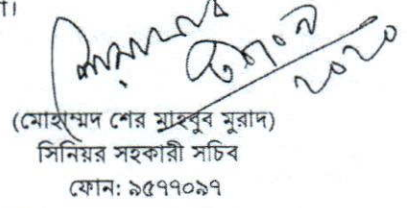 (মোহাম্মদ শের মাহবুব মুরাদ)
সিনিয়র সহকারী সচিব
ফোন: ৯৫৭৭০৯৭